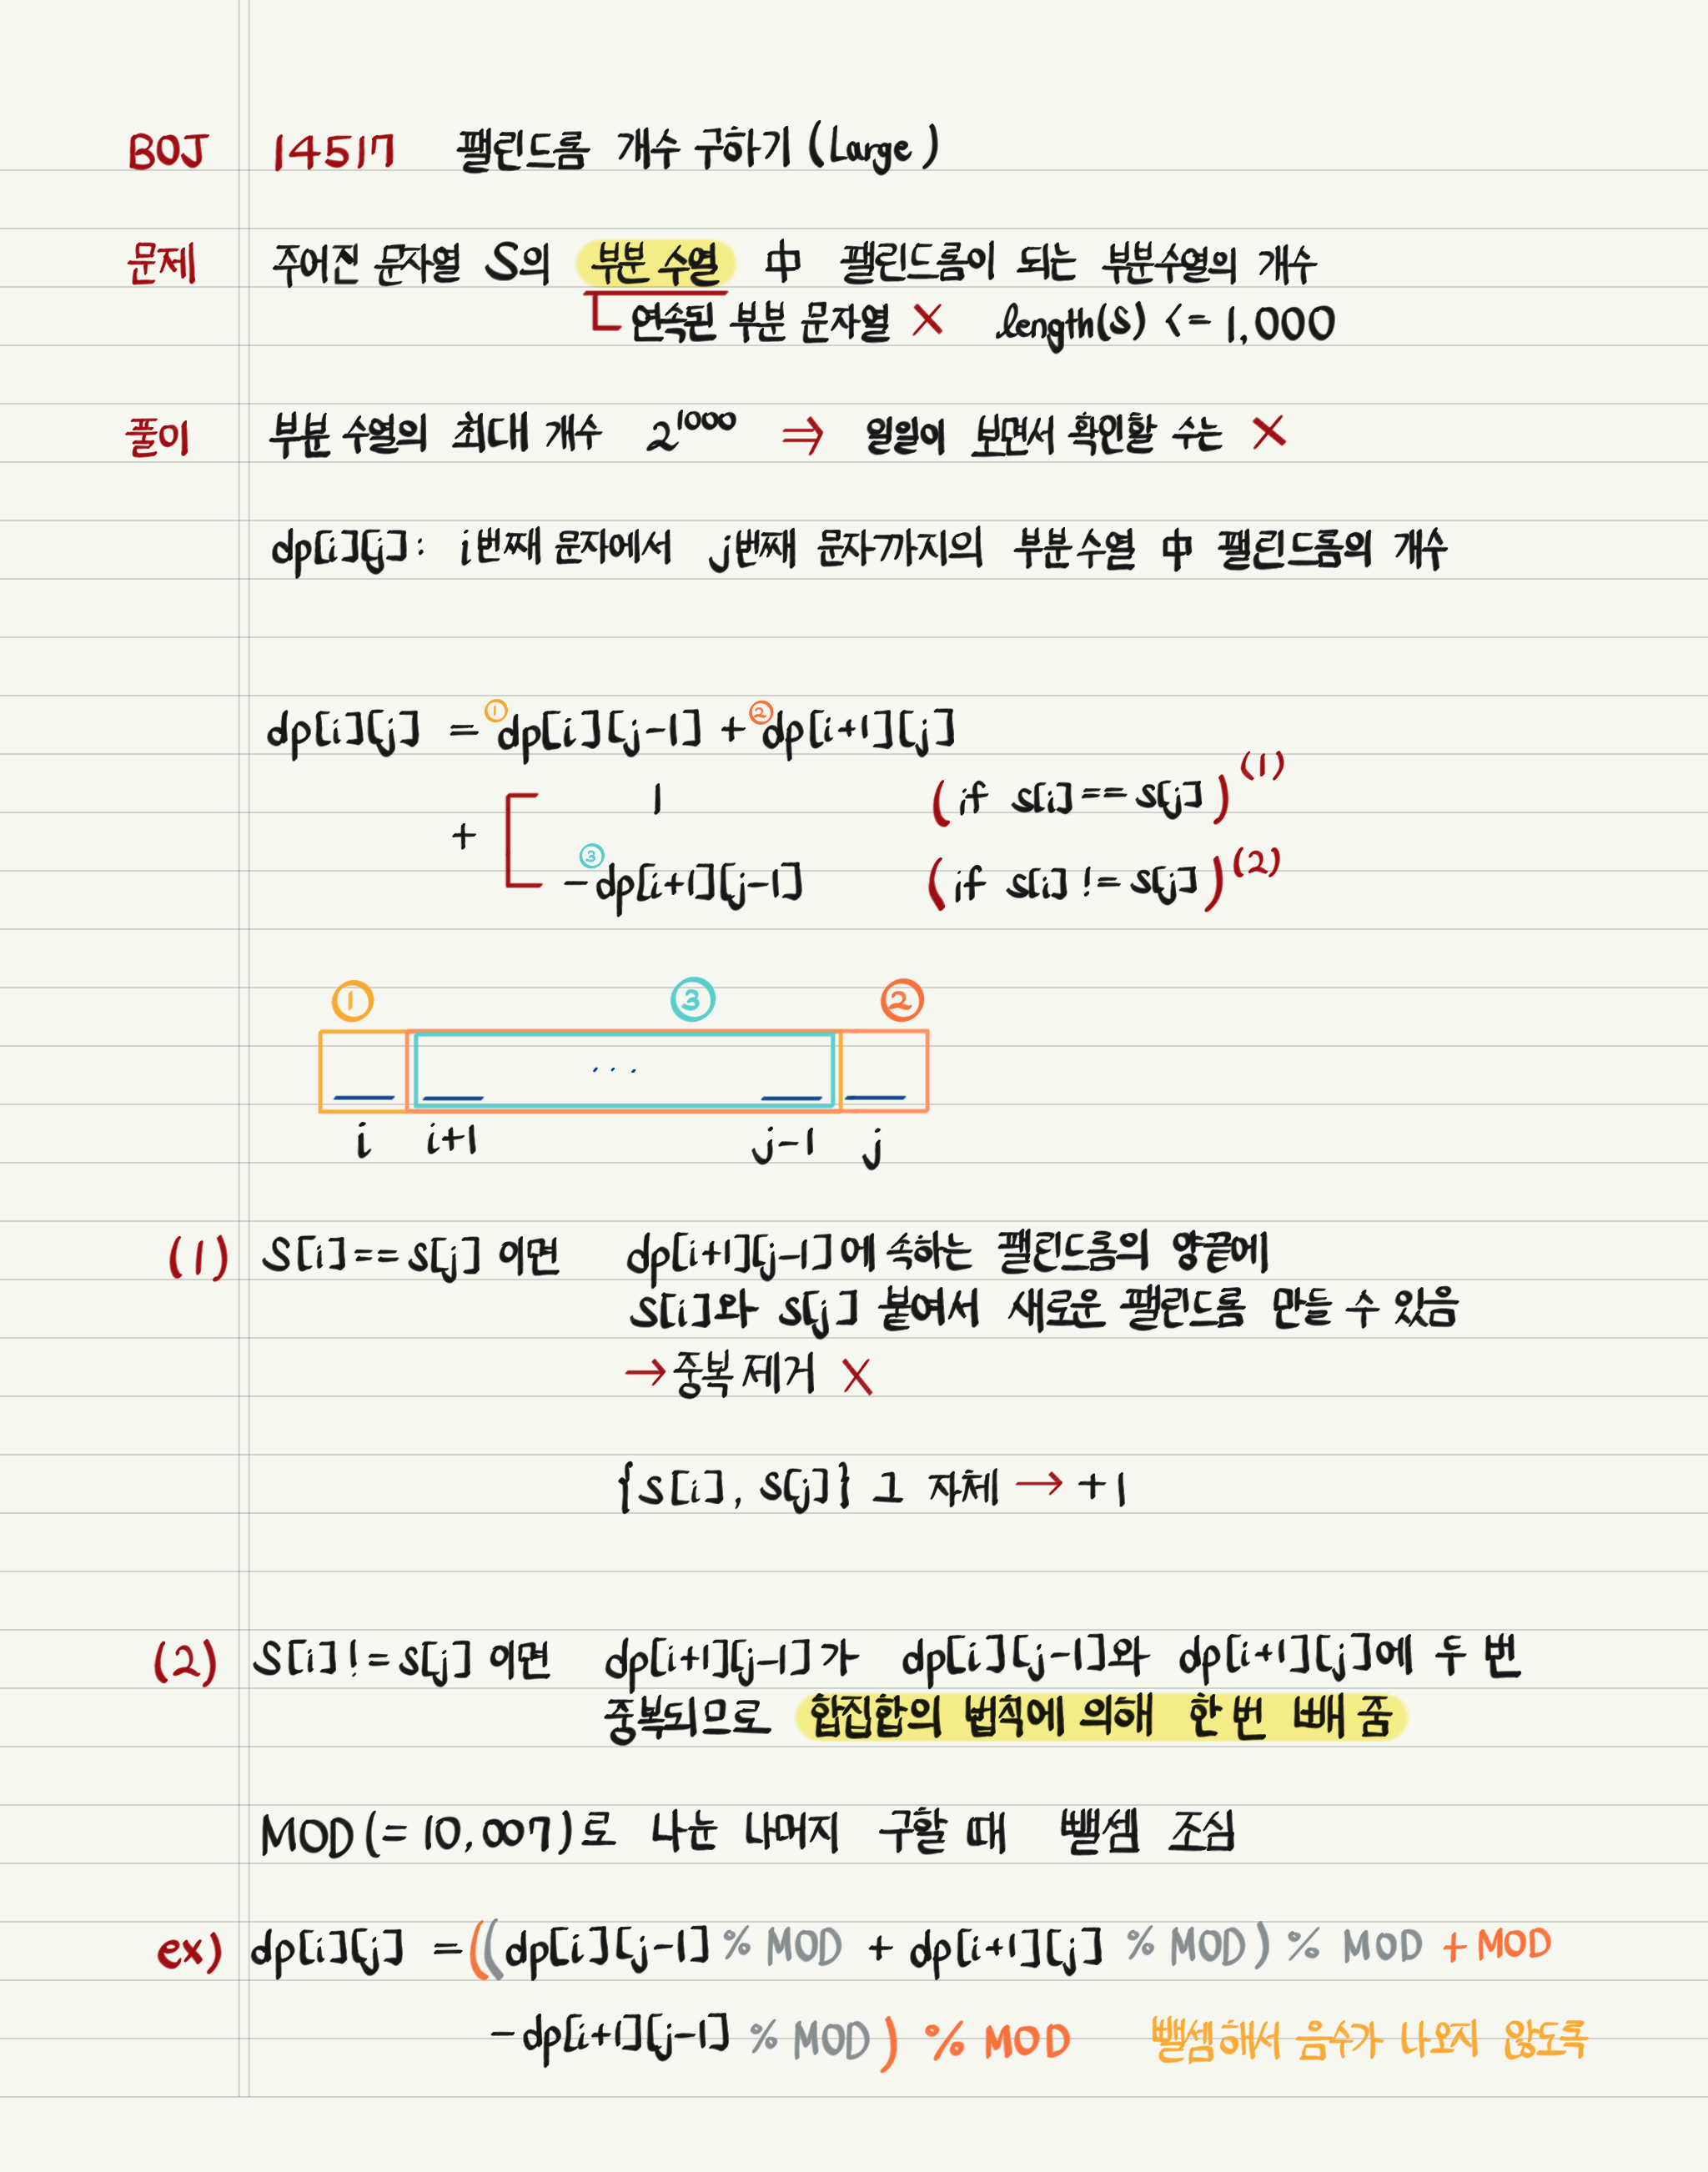 BOJ 14517 팰린드롬 개수 구하기 (Large)
문제 주어진 문자열 S의 부분 수열 中 팰린드롬이 되는 부분수열의 개수
연속된 부분 문자열 × length(S) <= 1,000
풀이 부분 수열의 최대 개수 2^1000 ⇒ 일일이 보면서 확인할 수는 ×
dp[i][j]: i번째 문자에서 j번째 문자까지의 부분수열 中 팰린드롬의 개수
dp[i][j] = ①dp[i][j-1] + ②dp[i+1][j]
+ 1 (if s[i] == s[j]) (1)
③ -dp[i+1][j-1] (if s[i] != s[j]) (2)
① ③ ②
...
i i+1 j-1 j
(1) S[i]==s[j] 이면 dp[i+1][j-1]에 속하는 팰린드롬의 양끝에
s[i]와 s[j] 붙여서 새로운 팰린드롬 만들 수 있음
→ 중복 제거 ×
{s[i], s[j]} 그 자체 → +1
(2) S[i]!=s[j] 이면 dp[i+1][j-1]가 dp[i][j-1]와 dp[i+1][j]에 두 번
중복되므로 합집합의 법칙에 의해 한 번 빼 줌
MOD(=10,007)로 나눈 나머지 구할 때 뺄셈 조심
ex) dp[i][j] = ((dp[i][j-1] % MOD + dp[i+1][j] % MOD) % MOD + MOD
-dp[i+1][j-1] % MOD) % MOD 뺄셈해서 음수가 나오지 않도록